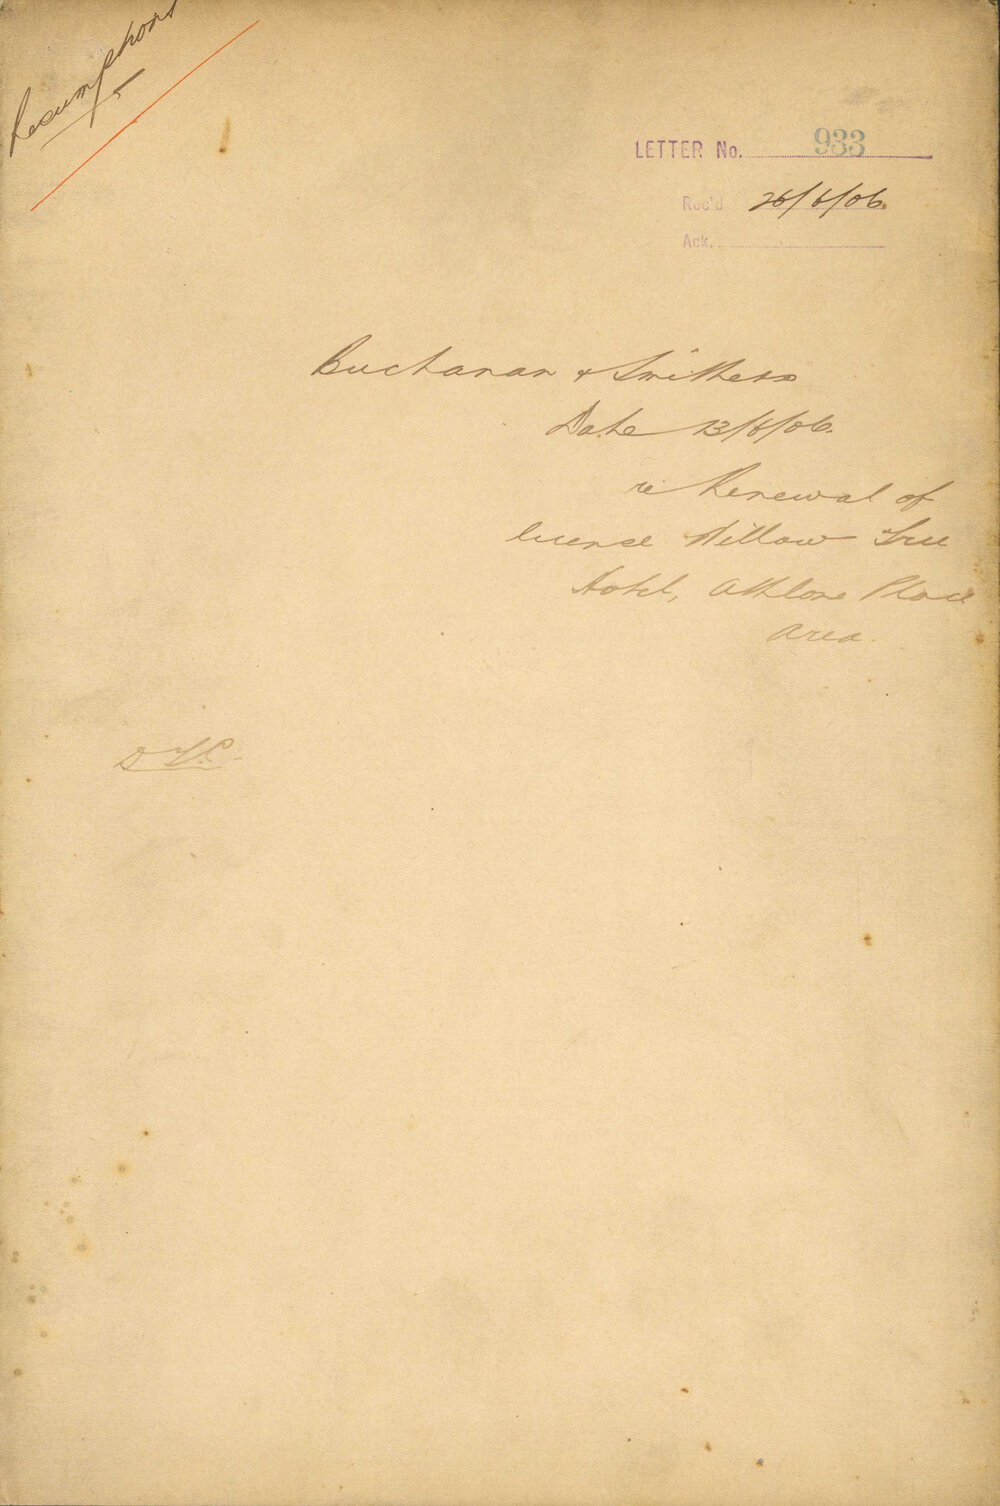 Resumptions
LETTER No. 933
Rec'd 26/6/06
Ack.
Buchanan & Smithers
Date 13/6/06.
re Renewal of
license Willow Tree
Hotel, Athlone Place
Area.